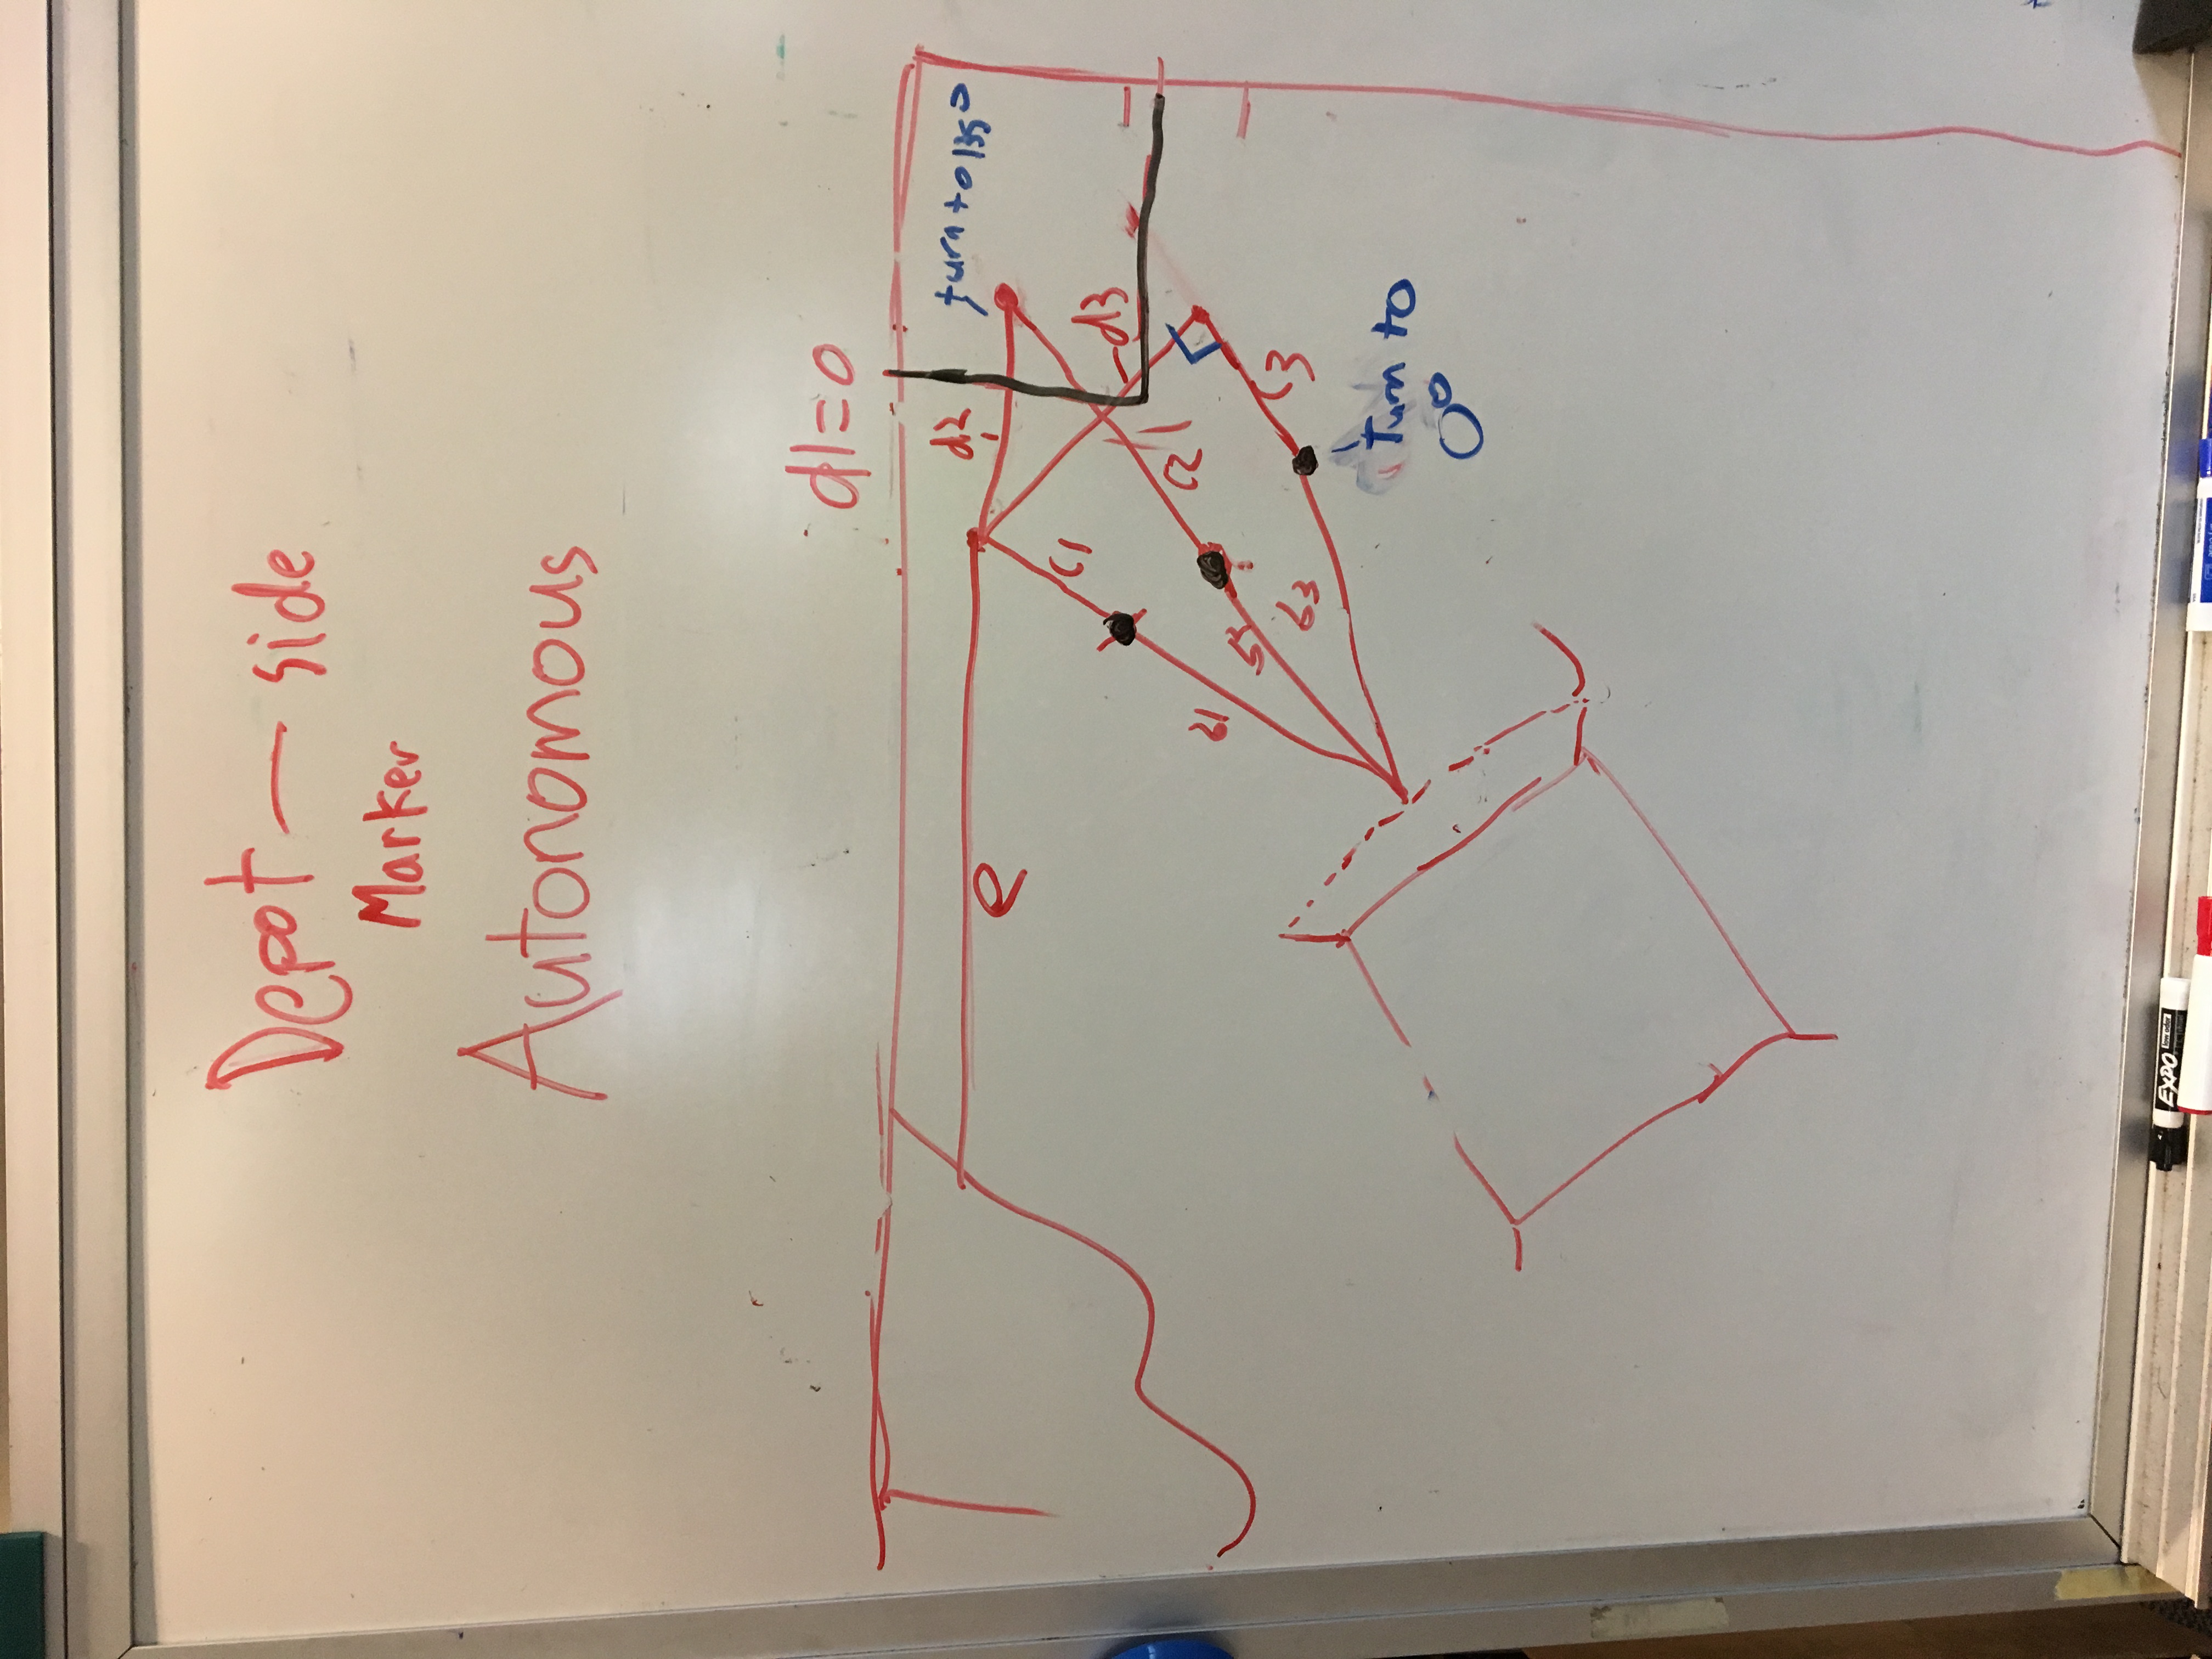 Depot — side
Marker
Autonomous
d1=0
d2
turn to 135°
e
c1
d3
b1
c2
b3
c3
Turn to
0°
EXPO
low odor